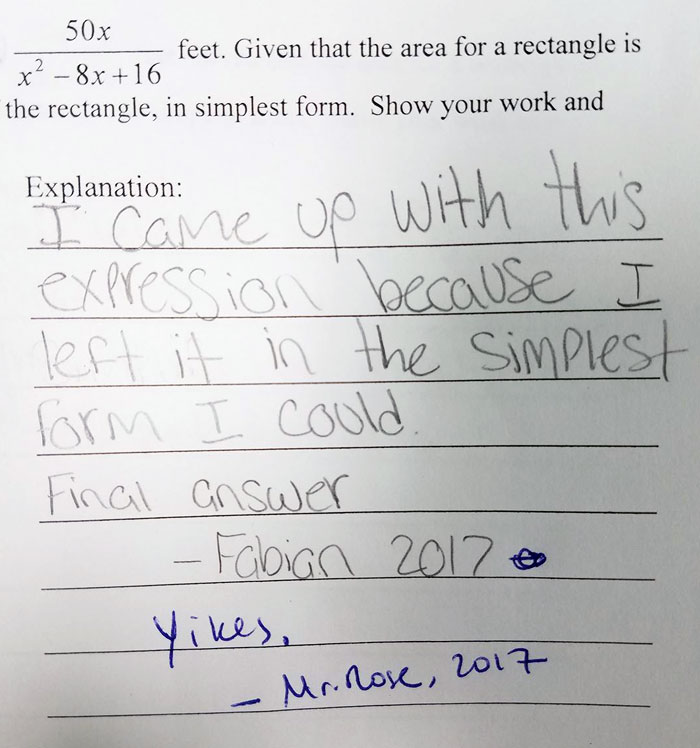 50x
x² – 8x + 16
feet. Given that the area for a rectangle is
the rectangle, in simplest form. Show your work and
Explanation:
I came up with this
expression because I
left it in the simplest
form I could.
Final answer
– Fabian 2017
Yikes,
– Mr. Rose, 2017